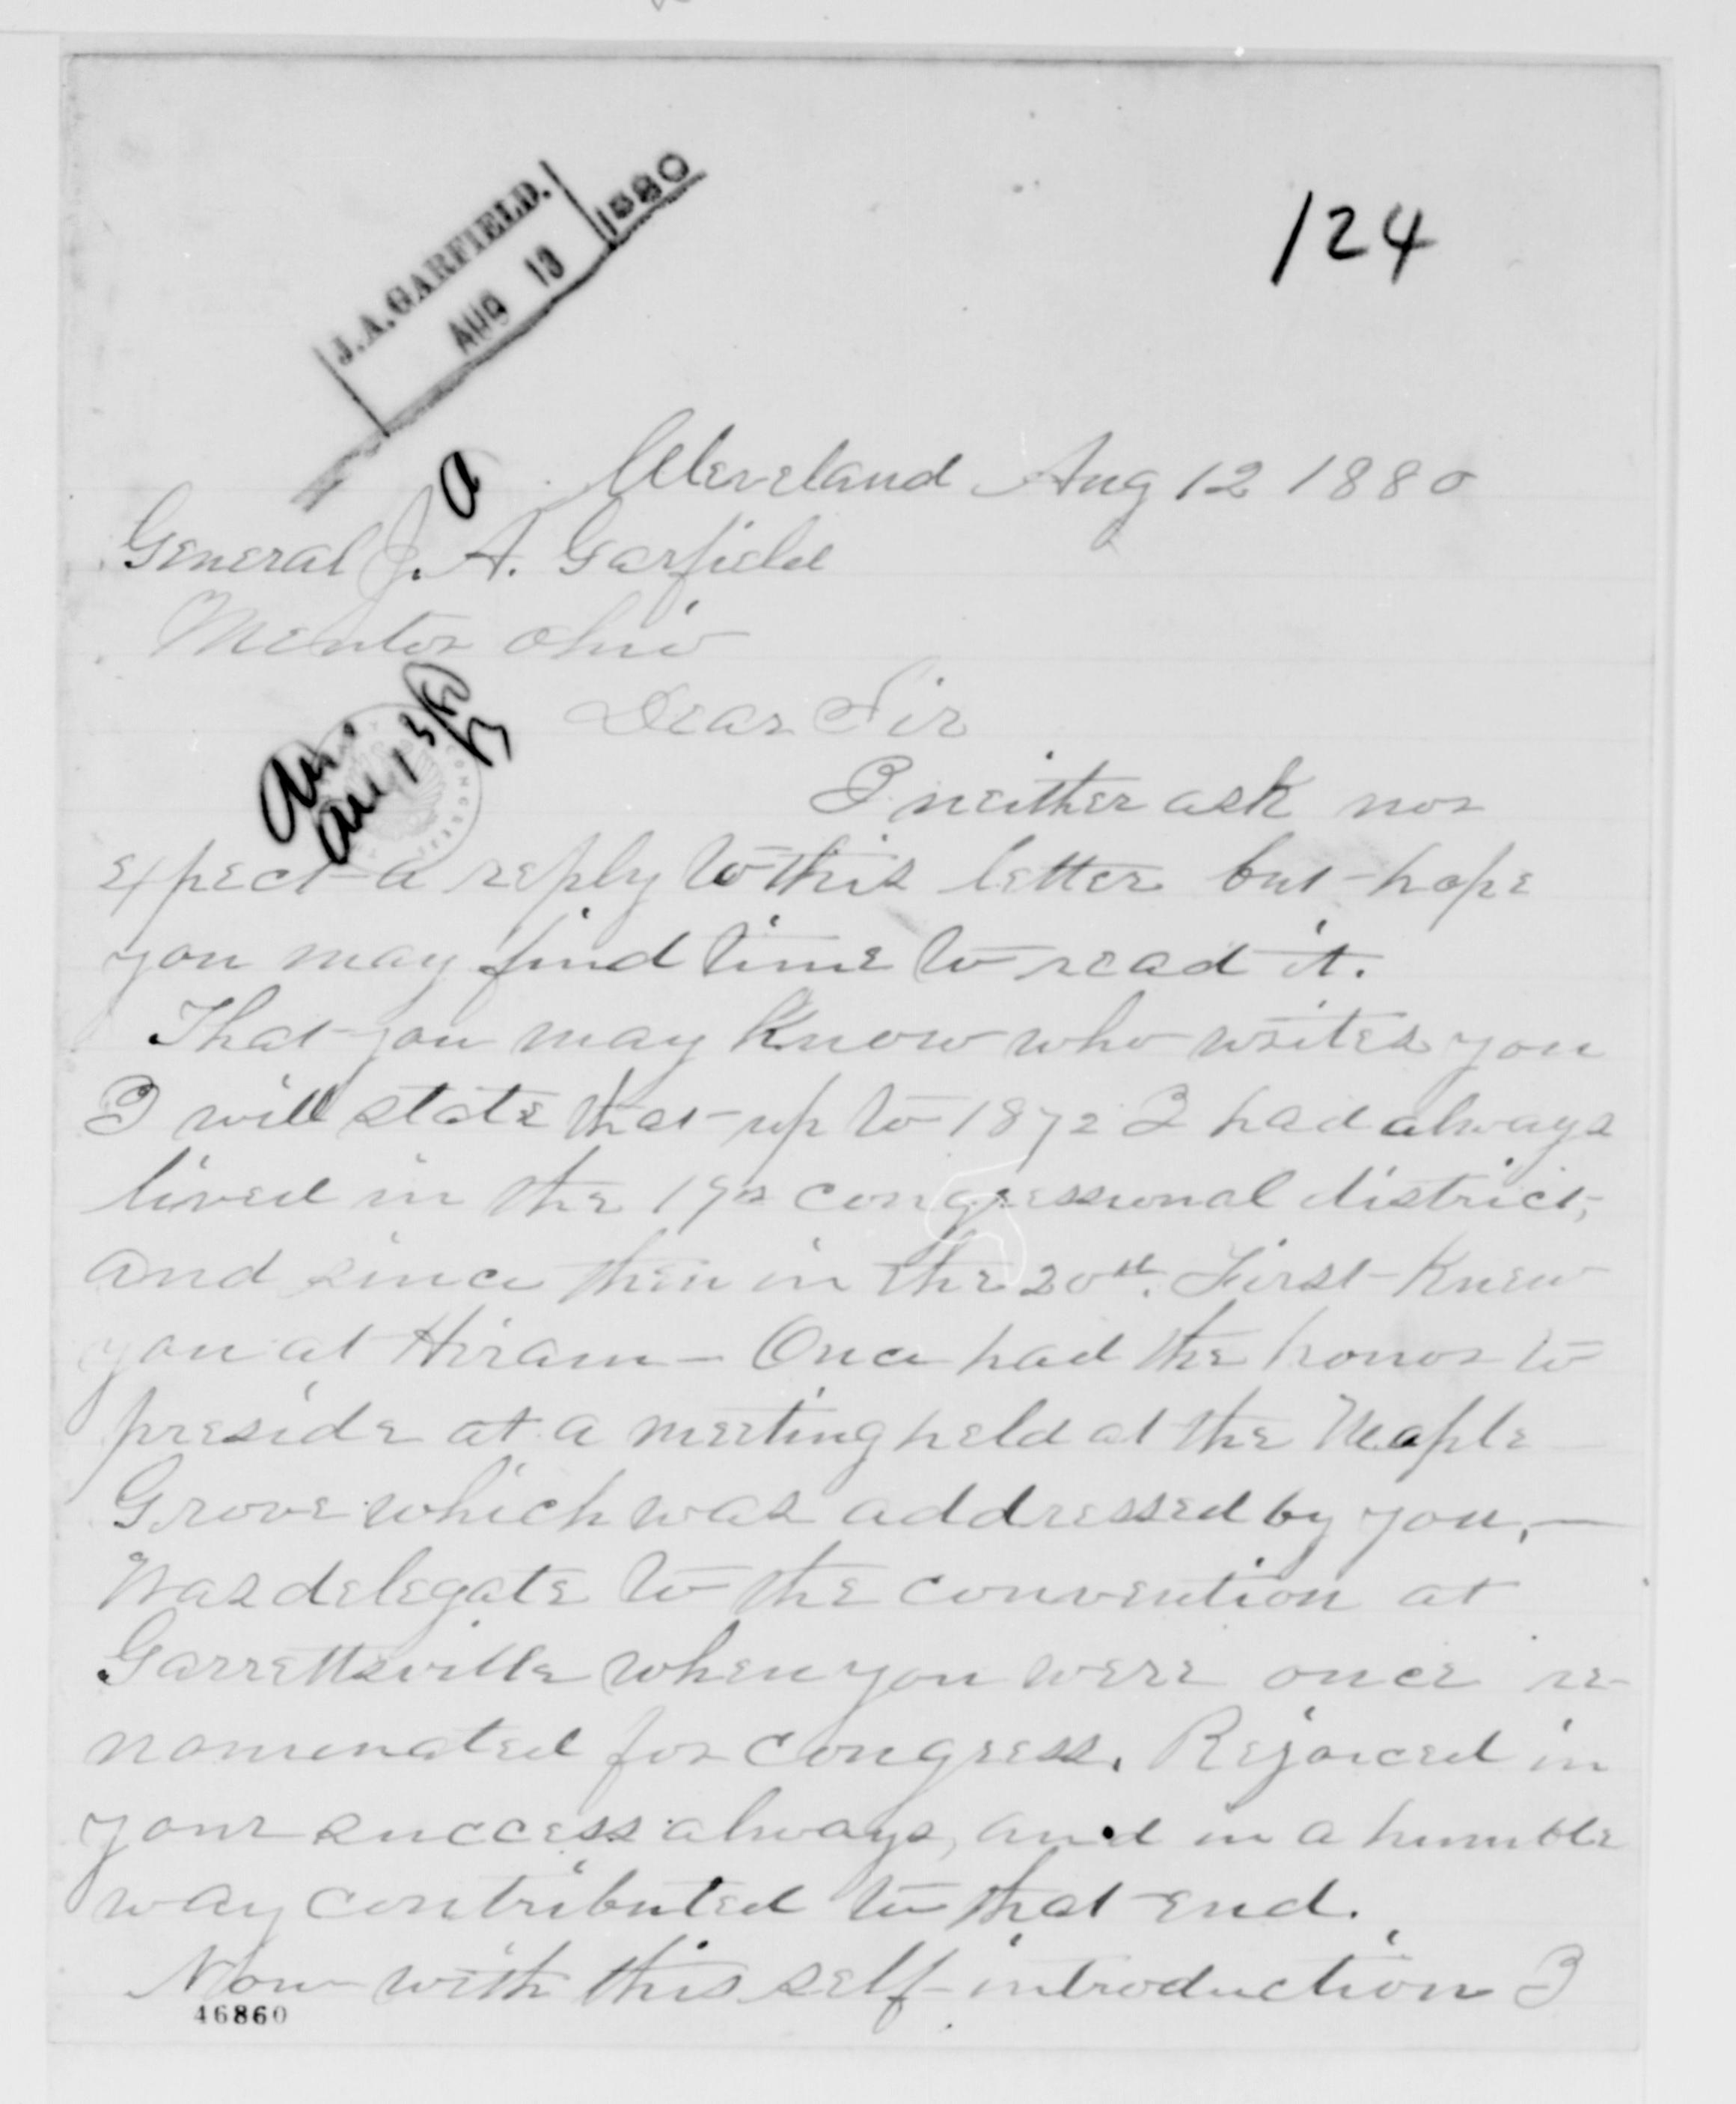 J. A. GARFIELD.
AUG 13 1880
124
a
Cleveland Aug 12 1880
General J. A. Garfield
Mentor Ohio
Dear Sir
I neither ask nor
expect a reply to this letter but hope
you may find time to read it.
That you may know who writes you
I will state that up to 1872 I had always
lived in the 19th congressional district,
and since then in the 20th. First knew
you at Hiram - Once had the honor to
preside at a meeting held at the Maple
Grove which was addressed by you, -
Was delegate to the convention at
Garrettsville when you were once re-
nominated for congress. Rejoiced in
your success always, and in a humble
way contributed to that end.
Now with this self-introduction I
46860